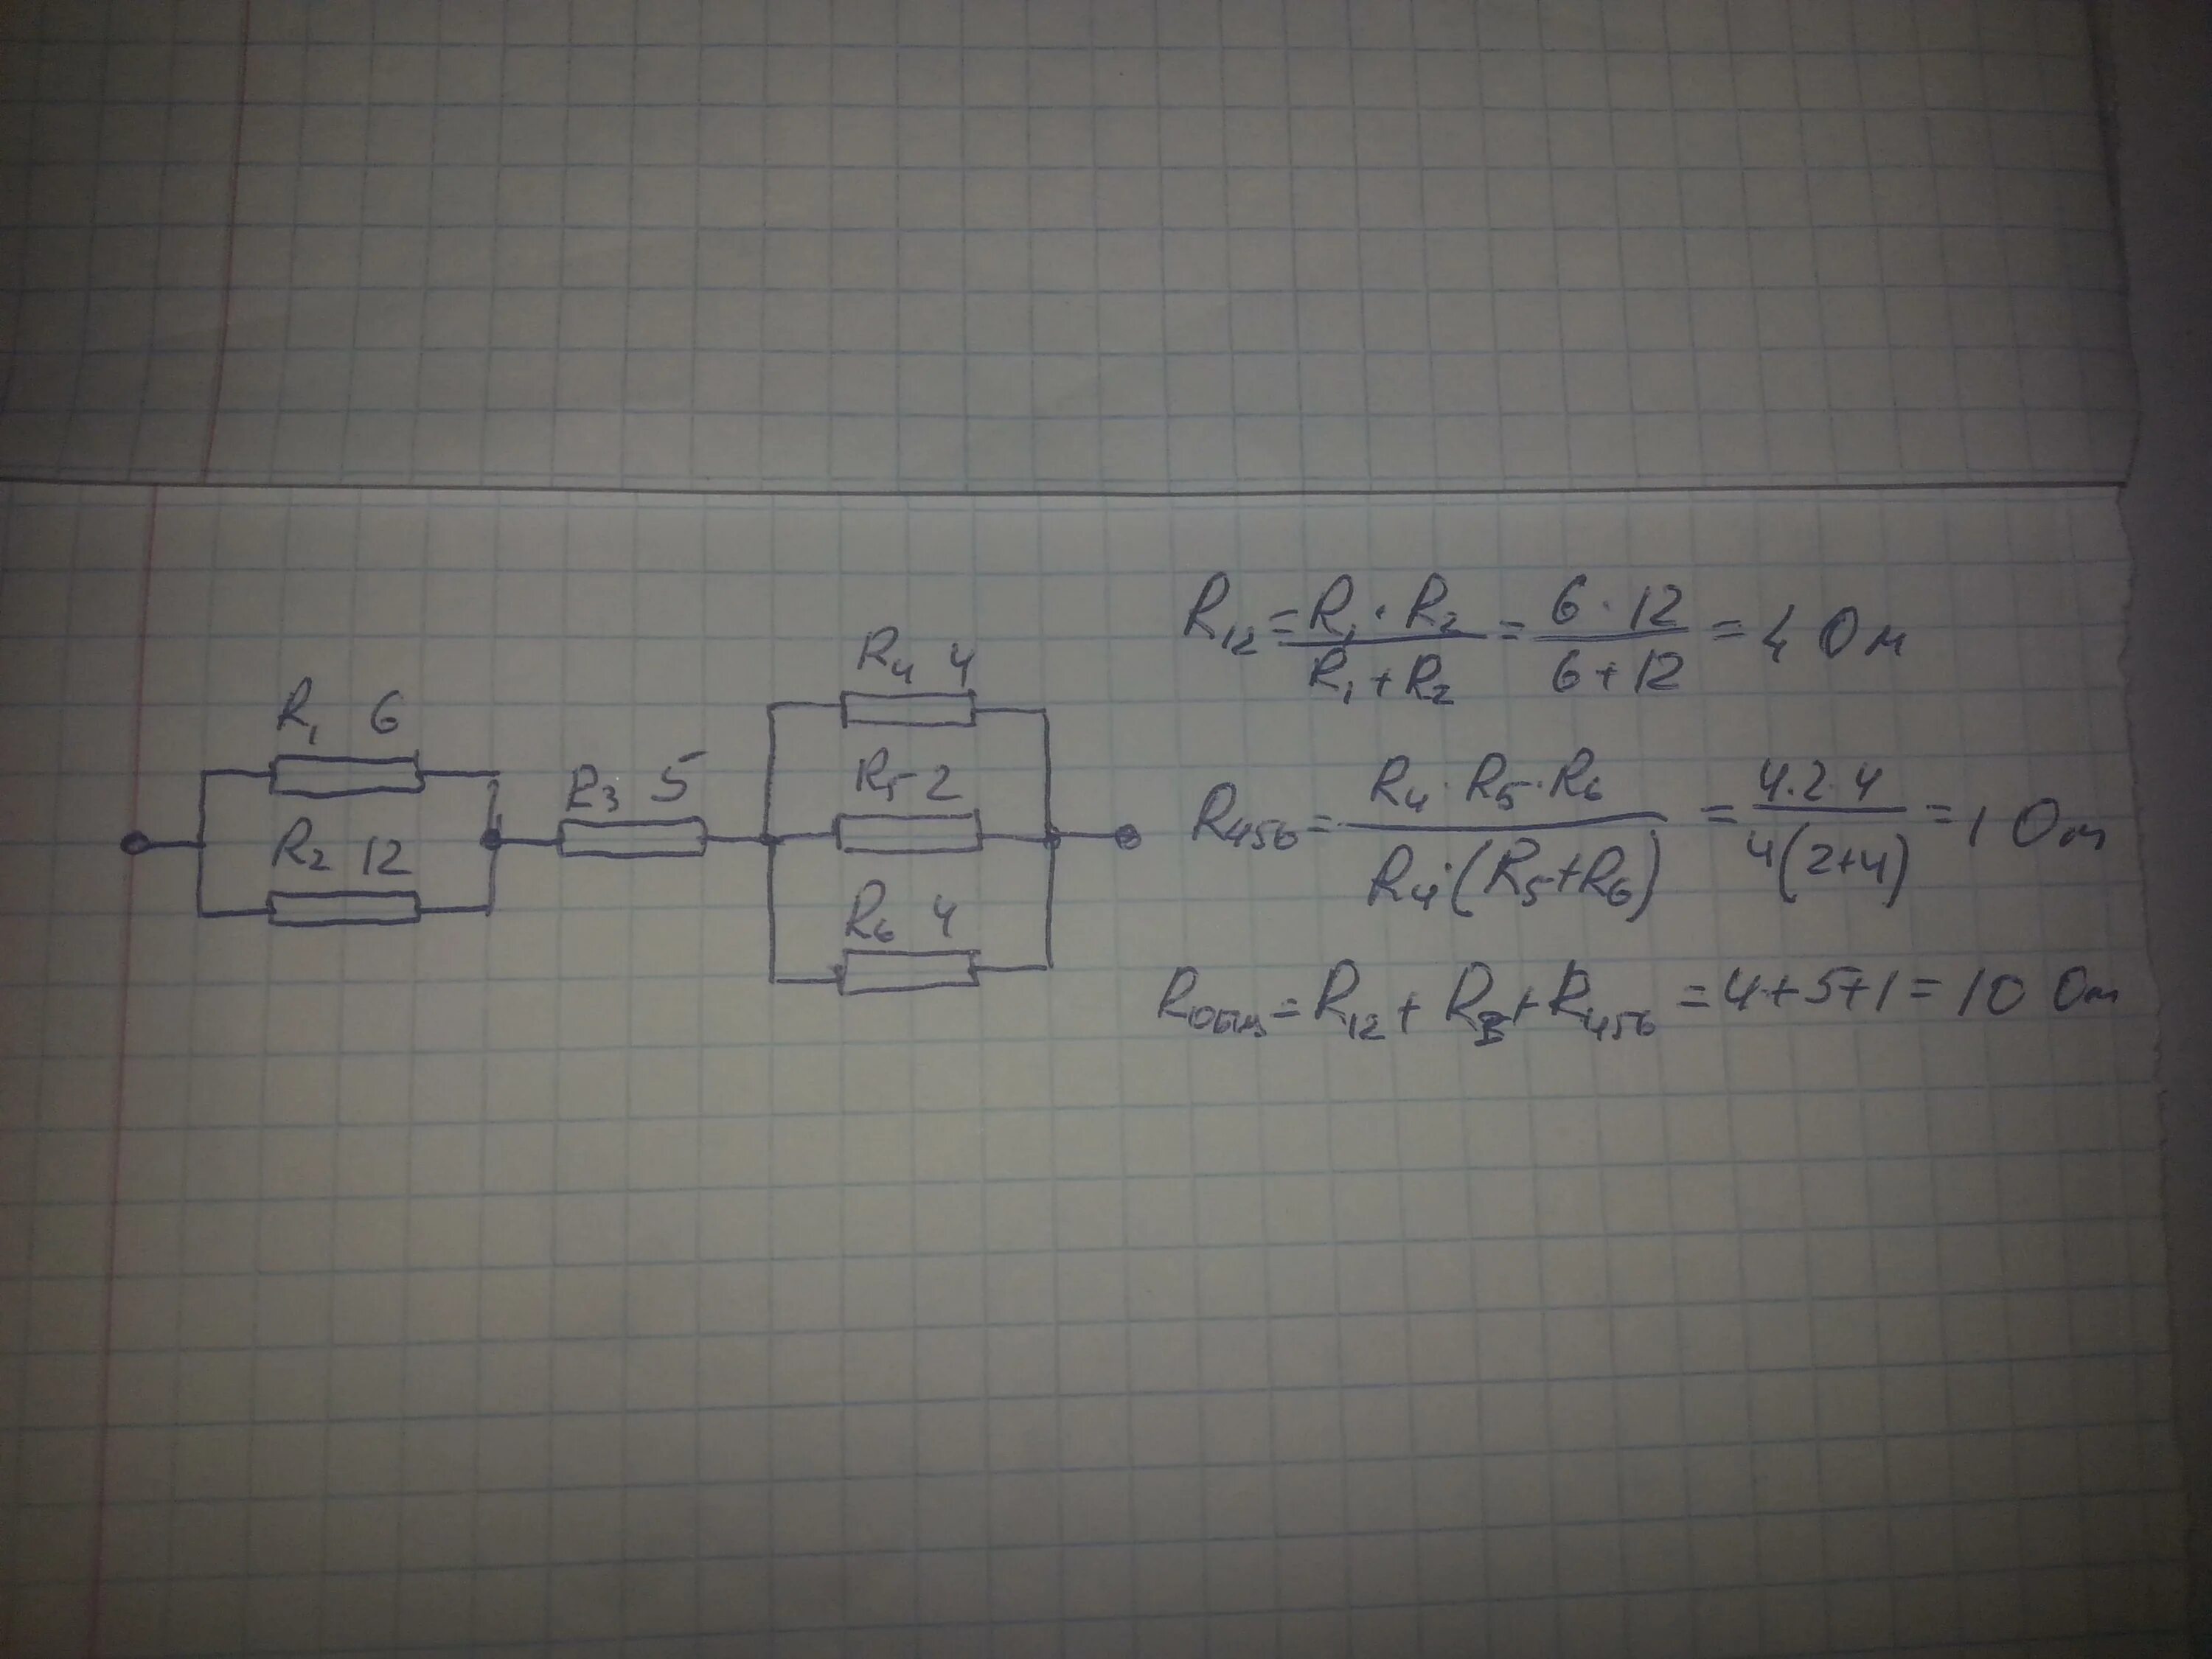 R₁ 6
R₂ 12
R3 5
R₄ 4
R5 2
R₆ 4
R₁₂ = R₁ · R₂ / R₁ + R₂ = 6 · 12 / 6 + 12 = 4 Ом
R₄₅₆ = R₄ · R₅ · R₆ / R₄ · (R₅ + R₆) = 4 · 2 · 4 / 4 (2+4) = 1 Ом
Rобщ = R₁₂ + R₃ + R₄₅₆ = 4+5+1 = 10 Ом